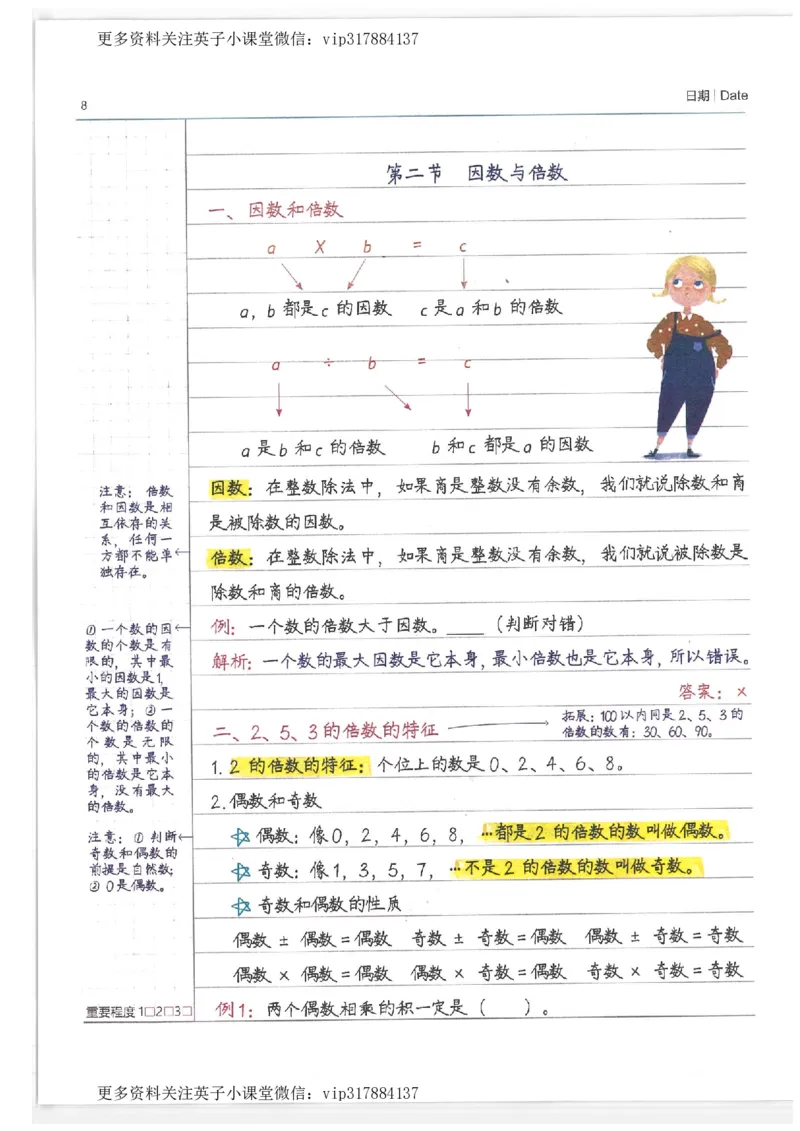 更多资料关注英子小课堂微信：vip317884137
8
日期 | Date
第二节 因数与倍数
一、因数和倍数
a X b = c
a，b 都是c 的因数 c 是a 和b 的倍数
a ÷ b = c
a 是b 和c 的倍数 b 和c 都是a 的因数
注意：倍数
和因数是相
互依存的关
系，任何一
方都不能单
独存在。
因数：在整数除法中，如果商是整数没有余数，我们就说除数和商
是被除数的因数。
倍数：在整数除法中，如果商是整数没有余数，我们就说被除数是
除数和商的倍数。
①一个数的因
数的个数是有
限的，其中最
小的因数是1，
最大的因数是
它本身；②一
个数的倍数的
个数是无限
的，其中最小
的倍数是它本
身，没有最大
的倍数。
例：一个数的倍数大于因数。____（判断对错）
解析：一个数的最大因数是它本身，最小倍数也是它本身，所以错误。
答案：×
二、2、5、3 的倍数的特征
拓展：100以内同是2、5、3的
倍数的数有：30、60、90。
1. 2 的倍数的特征：个位上的数是 0、2、4、6、8。
2. 偶数和奇数
注意：①判断
奇数和偶数的
前提是自然数；
②0是偶数。
☆ 偶数：像0，2，4，6，8，…都是2 的倍数的数叫做偶数。
☆ 奇数：像1，3，5，7，…不是2 的倍数的数叫做奇数。
☆ 奇数和偶数的性质
偶数 ± 偶数＝偶数 奇数 ± 奇数＝偶数 偶数 ± 奇数＝奇数
偶数 × 偶数＝偶数 偶数 × 奇数＝偶数 奇数 × 奇数＝奇数
重要程度 1□2□3□
例1：两个偶数相乘的积一定是（ ）。
更多资料关注英子小课堂微信：vip317884137